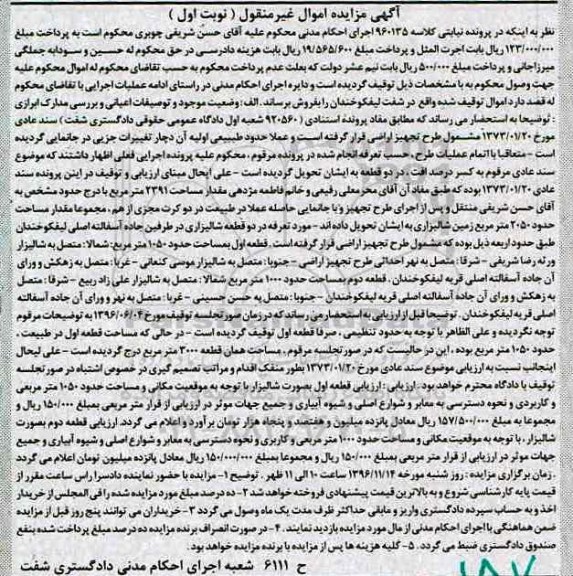 آگهی مزایده اموال غیرمنقول ( نوبت اول )
نظر به اینکه در پرونده نیابتی کلاسه ۹۶۰۱۳۵ اجرای احکام مدنی محکوم علیه آقای حسن شریفی چوبری محکوم است به پرداخت مبلغ
۱۲۳/۰۰۰/۰۰۰ ریال بابت اجرت المثل و پرداخت مبلغ ۱۹/۵۶۵/۶۰۰ ریال بابت هزینه دادرسی در حق محکوم له حسین و سودابه جملگی
میرزاجانی و پرداخت مبلغ ۵۰۰/۰۰۰ ریال بابت نیم عشر دولت که بعلت عدم پرداخت محکوم به حسب تقاضای محکوم له اموال محکوم علیه
جهت وصول محکوم به با مشخصات ذیل توقیف گردیده است و دایره اجرای احکام مدنی در راستای ادامه عملیات اجرایی با تقاضای محکوم
له قصد دارد اموال توقیف شده واقع در شفت لیفکوخندان را بفروش برساند. الف: وضعیت موجود و توصیفات اعیانی و بررسی مدارک ابرازی
: توضیحا به استحضار می رساند که مطابق مفاد پرونده استنادی ( ۹۲۰۵۶۰ شعبه اول دادگاه عمومی حقوقی دادگستری شفت ) سند عادی
مورخ ۱۳۷۳/۰۱/۲۰ مشمول طرح تجهیز اراضی قرار گرفته است و عملا حدود طبیعی اولیه آن دچار تغییرات جزیی در جانمایی گردیده
است - متعاقبا با اتمام عملیات طرح ، حسب تعرفه انجام شده در پرونده مرقوم ، محکوم علیه پرونده اجرایی فعلی اظهار داشتند که موضوع
سند عادی مرقوم به کسر درصد افت ، در دو قطعه به ایشان تحویل گردیده است - علی ایحال مبنای ارزیابی و توقیف در این پرونده سند
عادی ۱۳۷۳/۰۱/۲۰ بوده که طبق مفاد آن آقای محرمعلی رفیعی و خانم فاطمه مژدهی مقدار مساحت ۲۳۹۱ متر مربع با درج حدود مشخص به
آقای حسن شریفی منتقل و پس از اجرای طرح تجهیز و با جانمایی حاصله عملا در طبیعت در دو کرت مجزی از هم ، مجموعا مقدار مساحت
حدود ۲۰۵۰ متر مربع زمین شالیزاری به ایشان تحویل داده اند - مورد تعرفه در دو قطعه شالیزاری در طرفین جاده آسفالته اصلی لیفکوخندان
طبق حدود اربعه ذیل بوده که مشمول طرح تجهیز اراضی قرار گرفته است . قطعه اول بمساحت حدود ۱۰۵۰ متر مربع: شمالا: متصل به شالیزار
ورثه رضا شریفی - شرقا: متصل به نهر احداثی طرح تجهیز اراضی - جنوبا: متصل به شالیزار موسی کنعانی - غربا: متصل به زهکش و ورای
آن جاده آسفالته اصلی قریه لیفکوخندان . قطعه دوم بمساحت حدود ۱۰۰۰ متر مربع شمالا: متصل به شالیزار علی زاد ربیع - شرقا: متصل
به زهکش و ورای آن جاده آسفالته اصلی قریه لیفکوخندان - جنوبا: متصل به حسن حسینی - غربا: متصل به نهر و ورای آن جاده آسفالته
اصلی قریه لیفکوخندان . توضیحا قبل از ارزیابی به استحضار می رساند که در زمان صورتجلسه توقیف مورخ ۱۳۹۶/۰۶/۰۴ به توضیحات مرقوم
توجه نگردیده و علی الظاهر با توجه به حدود تنظیمی ، صرفا قطعه اول توقیف گردیده است - در حالی که مساحت قطعه اول در طبیعت ،
حدود ۱۰۵۰ متر مربع بوده ، این در حالیست که در صورتجلسه مرقوم ، مساحت همان قطعه ۳۰۰۰ متر مربع درج گردیده است - علی ایحال
اینجانب نسبت به ارزیابی موضوع سند عادی مورخ ۱۳۷۳/۰۱/۲۰ بطور منفک اقدام و مراتب تصمیم گیری در خصوص اشتباه در صورتجلسه
توقیف با دادگاه محترم خواهد بود . ارزیابی : ارزیابی قطعه اول بصورت شالیزار با توجه به موقعیت مکانی و مساحت حدود ۱۰۵۰ متر مربعی
و کاربردی و نحوه دسترسی به معابر و شوارع اصلی و شیوه آبیاری و جمیع جهات موثر در ارزیابی از قرار متر مربعی بمبلغ ۱۵۰/۰۰۰ ریال و
مجموعا به مبلغ ۱۵۷/۵۰۰/۰۰۰ ریال معادل پانزده میلیون و هفتصد و پنجاه هزار تومان برآورد و اعلام می گردد. ارزیابی قطعه دوم بصورت
شالیزار ، با توجه به موقعیت مکانی و مساحت حدود ۱۰۰۰ متر مربعی و کاربری و نحوه دسترسی به معابر و شوارع اصلی و شیوه آبیاری و جمیع
جهات موثر در ارزیابی از قرار متر مربعی بمبلغ ۱۵۰/۰۰۰ ریال و مجموعا بمبلغ ۱۵۰/۰۰۰/۰۰۰ ریال معادل پانزده میلیون تومان اعلام می گردد
. زمان برگزاری مزایده : روز شنبه مورخه ۱۳۹۶/۱۱/۱۴ ساعت ۱۰ الی ۱۱ ظهر . توضیح ۱- مزایده با حضور نماینده دادسرا راس ساعت مقرر از
قیمت پایه کارشناسی شروع و به بالاترین قیمت پیشنهادی فروخته خواهد شد ۲ - ده درصد مبلغ مورد مزایده شده را فی المجلس از خریدار
اخذ و به حساب سپرده دادگستری واریز و مابقی حداکثر ظرف مدت یک ماه وصول می گردد ۳ - خریداران می توانند پنج روز قبل از مزایده
ضمن هماهنگی با اجرای احکام مدنی از مال مورد مزایده بازدید نمایند . ۴ - در صورت انصراف برنده مزایده ده درصد مبلغ پرداخت شده بنفع
صندوق دادگستری ضبط می گردد . ۵ - کلیه هزینه ها پس از مزایده با برنده مزایده خواهد بود.
ح ۶۱۱۱ شعبه اجرای احکام مدنی دادگستری شفت